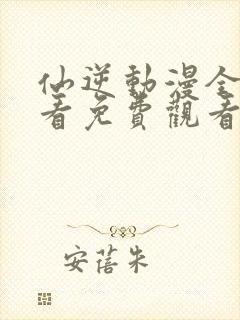 仙逆動漫全
看免費觀看
安蓓朱